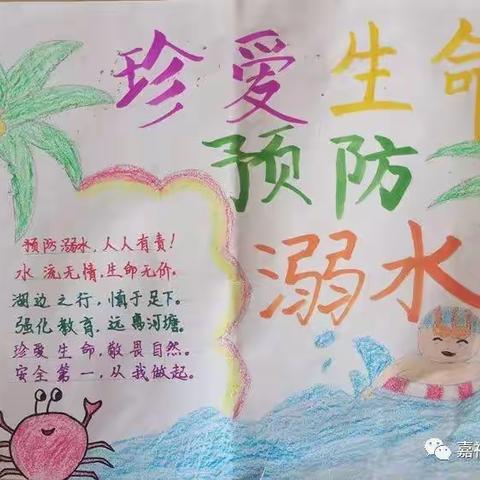 珍爱生命
预防
溺水
预防溺水,人人有责!
水流无情,生命无价。
湖边之行,慎于足下。
强化教育,远离河塘。
珍爱生命,敬畏自然。
安全第一,从我做起。